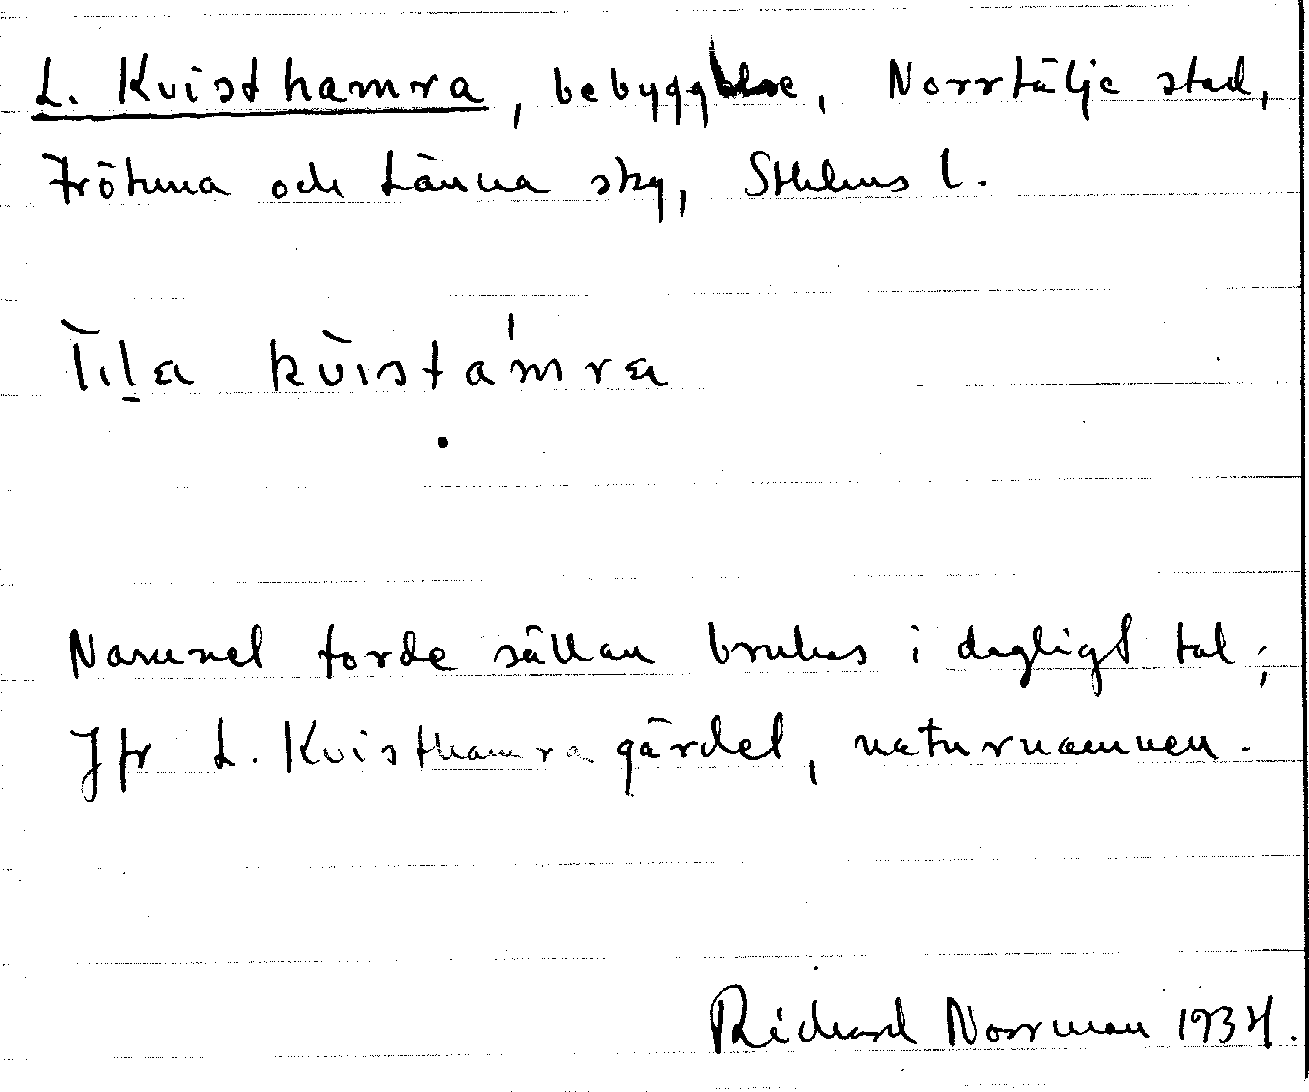 L. Kvisthamra, bebyggelse, Norrtälje stad,
Frötuna och Länna sky, Sthlms l.
kvistamra
Namnet torde sällan brukas i dagligt tal;
Jfr L. Kvisthamra gärdet, naturnamnen.
Richard Norrman 1934.